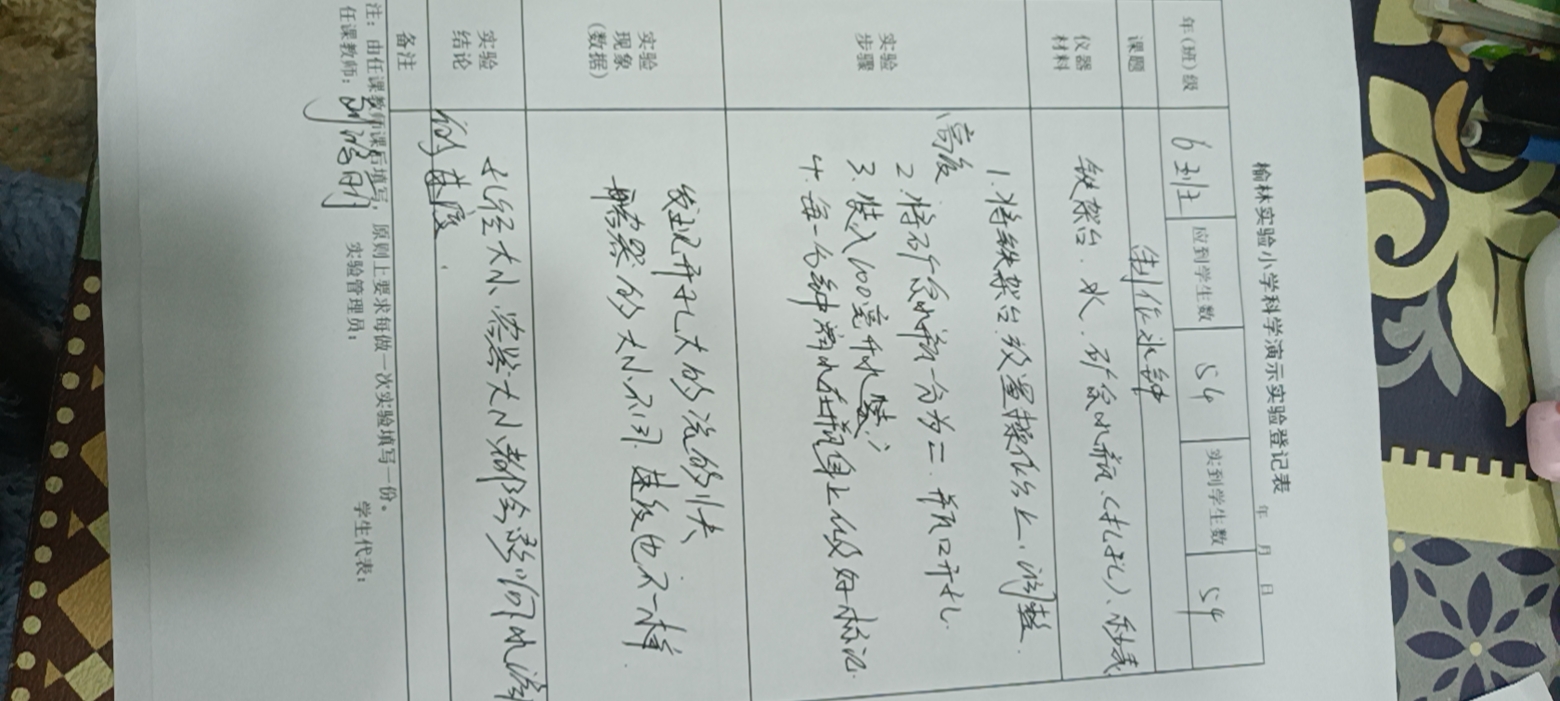 榆林实验小学科学演示实验登记表
年 月 日
年(班)级 6班 应到学生数 54 实到学生数 54
课题 制作水钟
仪器材料 铁架台、水、矿泉水瓶、(扎孔)、秒表
实验步骤 1.将铁架台放置操作台上,调整
高度
2.将矿泉水瓶一分为二.瓶口开孔.
3.装入100毫升水
4.每一分钟 水在瓶身上做好标记.
实验现象(数据) 发现开孔大的流的快
容器的大小不同.速度也不一样.
实验结论 孔径大小、容器大小都会影响水流
的速度.
备注
注:由任课教师课后填写,原则上要求每做一次实验填写一份。
任课教师: 实验管理员: 学生代表: